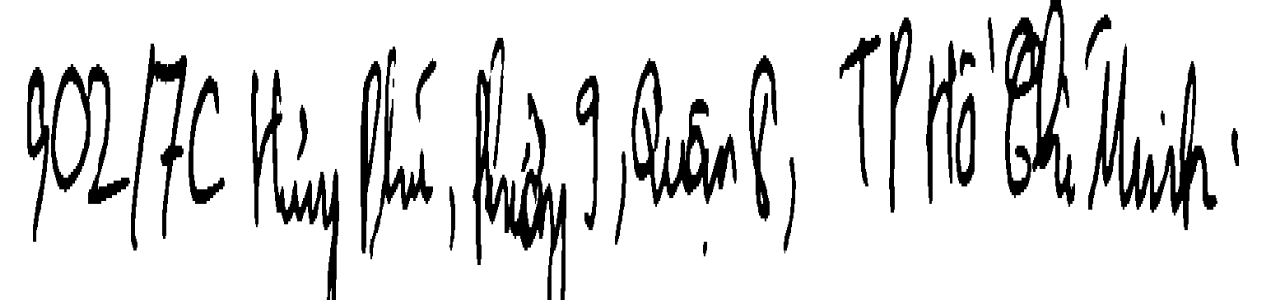 902/7C Hưng Phú, Phường 9, Quận 8, TP Hồ Chí Minh.